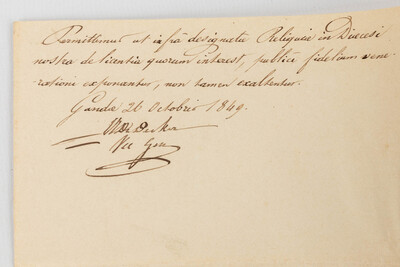 Permittimus ut infrà designatæ Reliquiæ in Diœcesi
nostra de licentia quorum interest, publicæ fidelium vene-
rationi exponantur, non tamen exaltentur.
Gandæ 26 Octobris 1849.
De Decker
Vic Gen